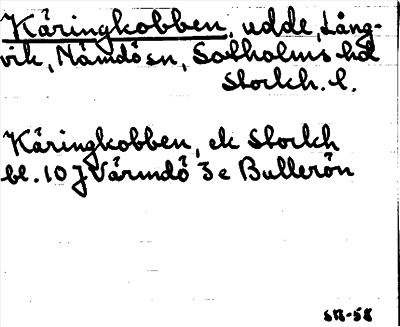 Käringkobben, udde, Lång-
vik, Nämdö sn, Sotholms hd
Stockh. l.
Käringkobben, ek Stockh
bl. 10 J Värmdö 3 e Bullerön
SB-58